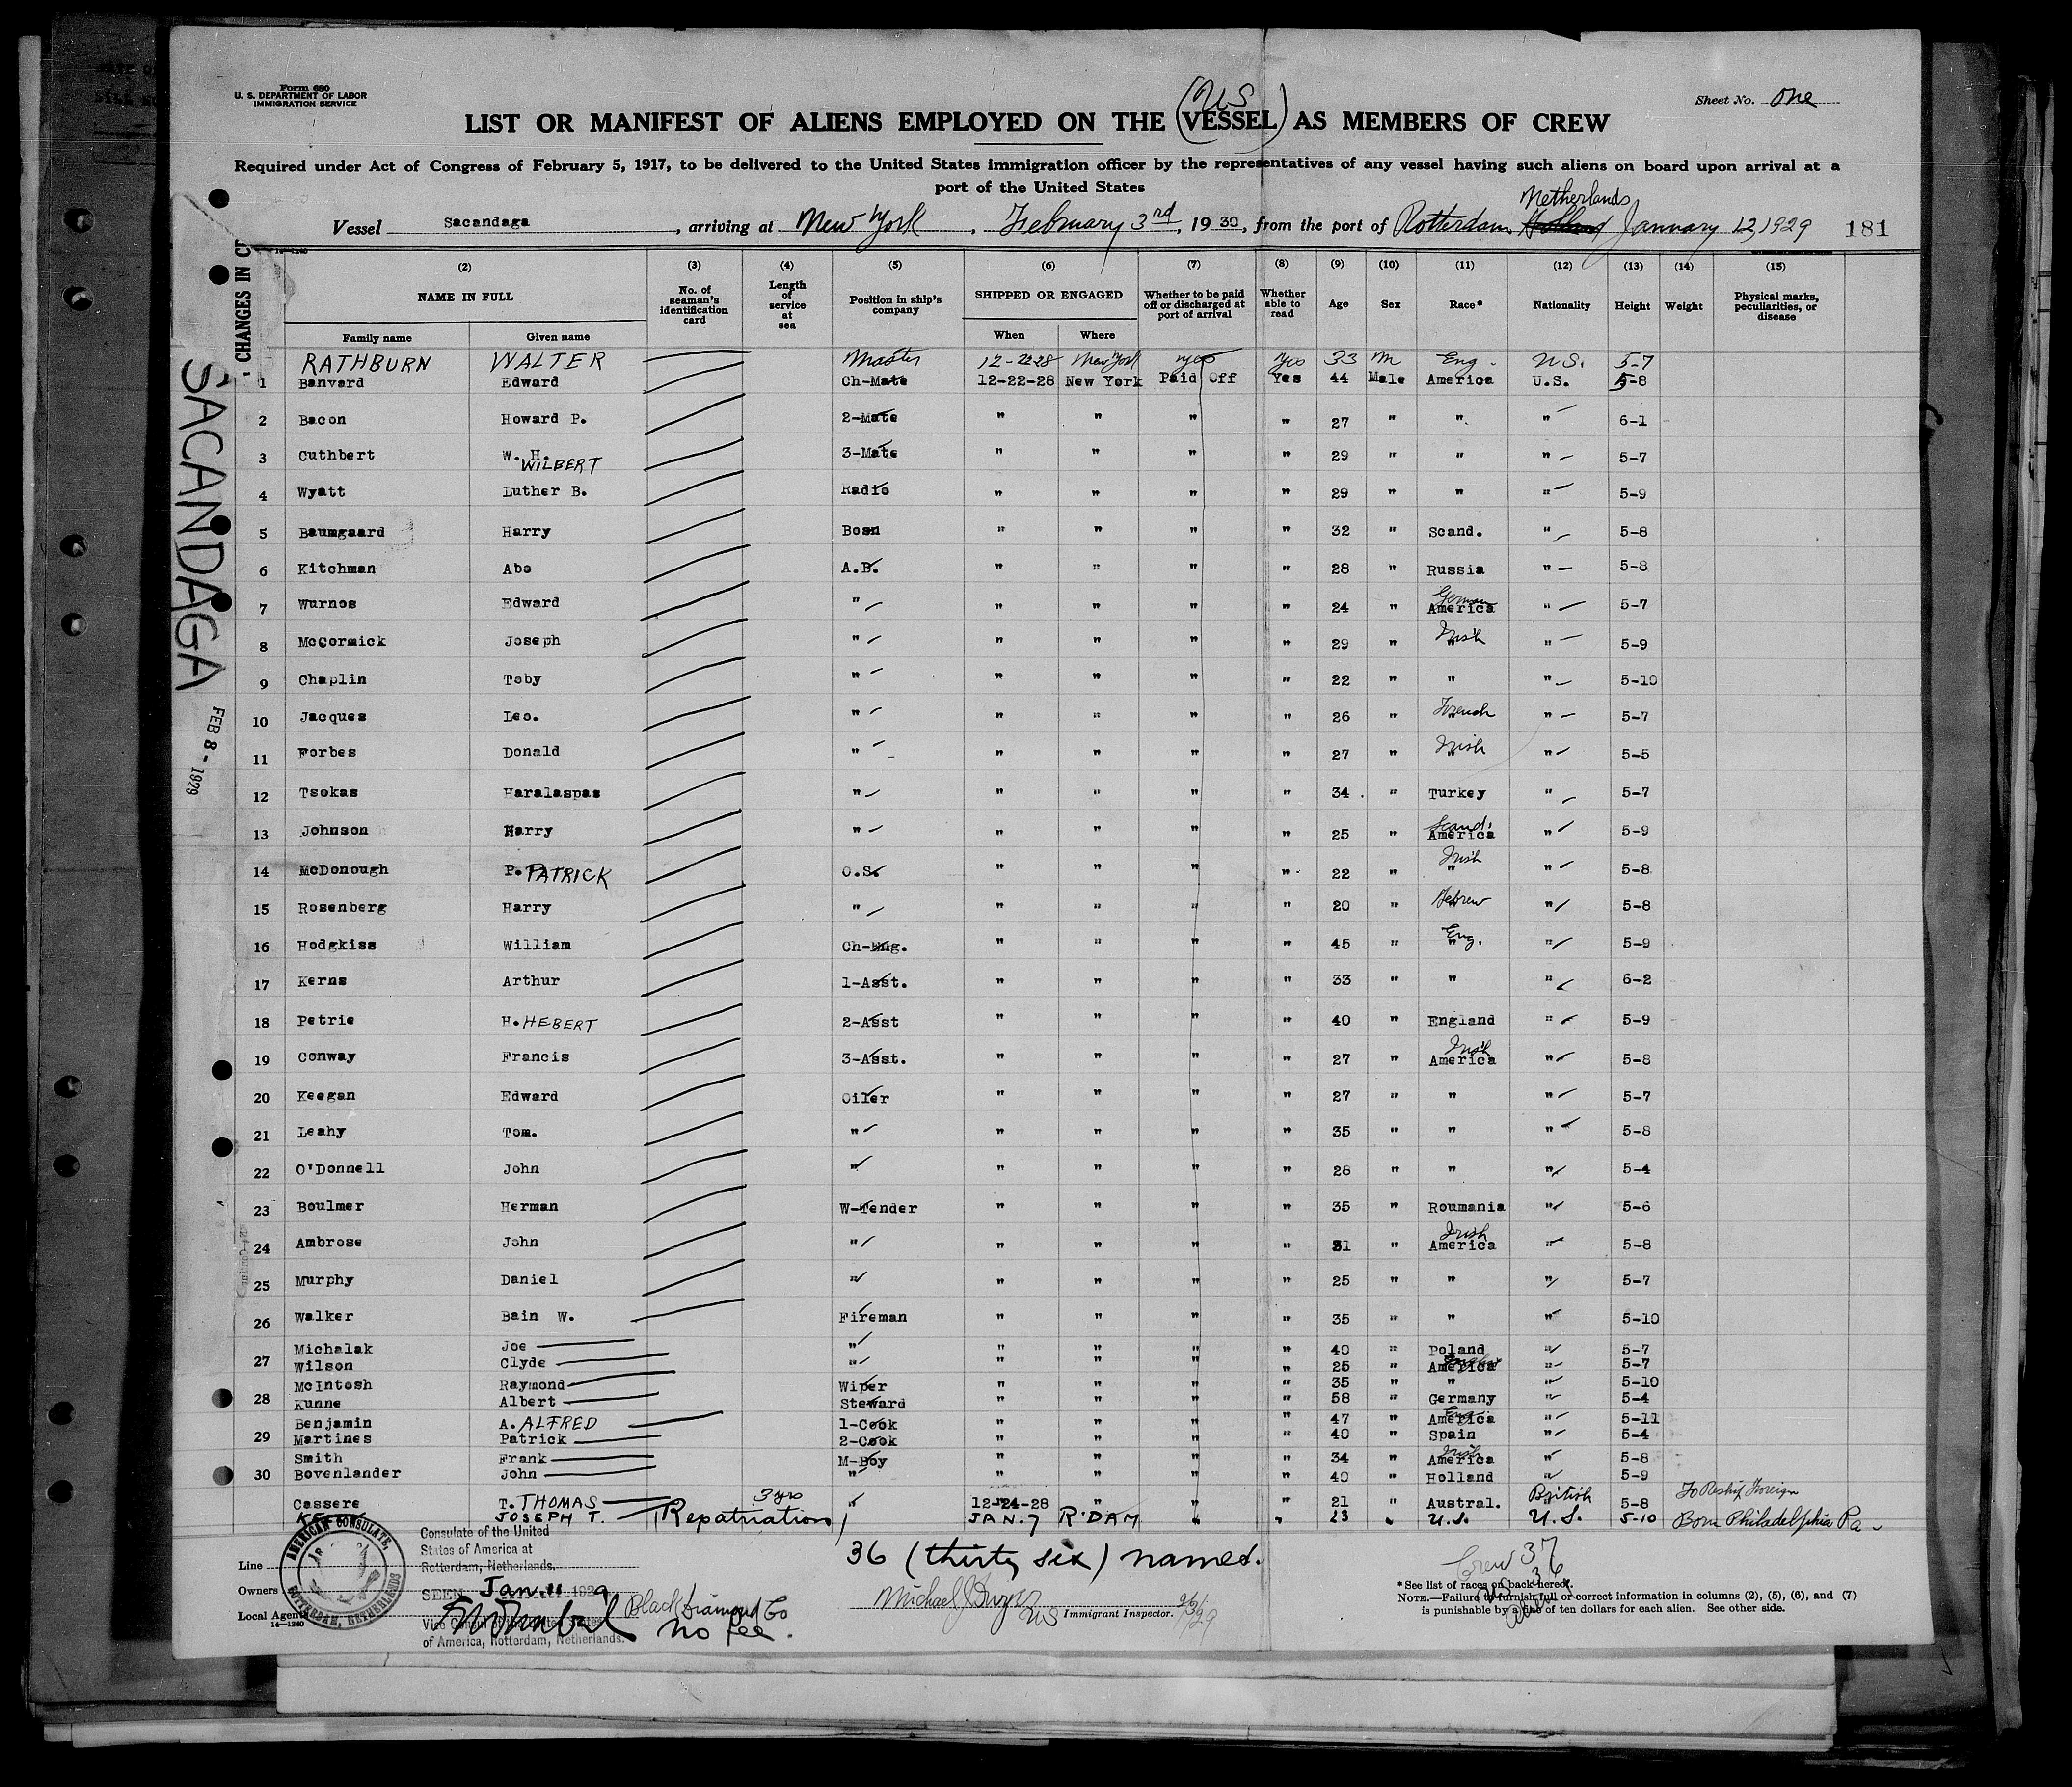 Form 680
U. S. DEPARTMENT OF LABOR
IMMIGRATION SERVICE
Sheet No. One
(US)
LIST OR MANIFEST OF ALIENS EMPLOYED ON THE (VESSEL) AS MEMBERS OF CREW
Required under Act of Congress of February 5, 1917, to be delivered to the United States immigration officer by the representatives of any vessel having such aliens on board upon arrival at a
port of the United States
Netherlands
Vessel Sacandaga, arriving at New York, February 3rd, 1930, from the port of Rotterdam Holland January 12, 1929 181
CHANGES IN
SACANDAGA
FEB 8 - 1929
14-1240
(2) (3) (4) (5) (6) (7) (8) (9) (10) (11) (12) (13) (14) (15)
NAME IN FULL No. of seaman's identification card Length of service at sea Position in ship's company SHIPPED OR ENGAGED Whether to be paid off or discharged at port of arrival Whether able to read Age Sex Race* Nationality Height Weight Physical marks, peculiarities, or disease
Family name Given name When Where
RATHBURN WALTER Master 12-22-28 New York yes Yes 33 M Eng. U.S. 5-7
1 Banvard Edward Ch-Mate 12-22-28 New York Paid Off Yes 44 Male America U.S. 5-8
2 Bacon Howard P. 2-Mate " " " " 27 " " " 6-1
3 Cuthbert W. H. WILBERT 3-Mate " " " " 29 " " " 5-7
4 Wyatt Luther B. Radio " " " " 29 " " " 5-9
5 Baumgaard Harry Bosn " " " " 32 " Scand. " 5-8
6 Kitchman Abe A.B. " " " " 28 " Russia " 5-8
7 Wurnos Edward " " " " " 24 " America German " 5-7
8 McCormick Joseph " " " " " 29 " " Irish " 5-9
9 Chaplin Toby " " " " " 22 " " " 5-10
10 Jacques Leo. " " " " " 26 " " French " 5-7
11 Forbes Donald " " " " " 27 " " Irish " 5-5
12 Tsokas Haralaspas " " " " " 34 " Turkey " 5-7
13 Johnson Harry " " " " " 25 " America Scand. " 5-9
14 McDonough P. PATRICK O.S. " " " " 22 " " Irish " 5-8
15 Rosenberg Harry " " " " " 20 " " Hebrew " 5-8
16 Hodgkiss William Ch-Eng. " " " " 45 " " Eng. " 5-9
17 Kerns Arthur 1-Asst. " " " " 33 " " " 6-2
18 Petrie H. HEBERT 2-Asst " " " " 40 " England " 5-9
19 Conway Francis 3-Asst. " " " " 27 " America Irish " 5-8
20 Keegan Edward Oiler " " " " 27 " " " 5-7
21 Leahy Tom. " " " " " 35 " " " 5-8
22 O'Donnell John " " " " " 28 " " " 5-4
23 Boulmer Herman W-Tender " " " " 35 " Roumania " 5-6
24 Ambrose John " " " " " 31 " America Irish " 5-8
25 Murphy Daniel " " " " " 25 " " " 5-7
26 Walker Bain W. Fireman " " " " 35 " " " 5-10
Michalak Joe " " " " " 40 " Poland " 5-7
27 Wilson Clyde " " " " " 25 " America " 5-7
McIntosh Raymond Wiper " " " " 35 " " " 5-10
28 Kunne Albert Steward " " " " 58 " Germany " 5-4
Benjamin A. ALFRED 1-Cook " " " " 47 " America Eng. " 5-11
29 Martines Patrick 2-Cook " " " " 40 " Spain " 5-4
Smith Frank M-Boy " " " " 34 " America Irish " 5-8
30 Bovenlander John " " " " " 40 " Holland " 5-9
Cassere T. THOMAS 3 yrs " 12-24-28 " " " 21 " Austral. British 5-8 To Reship Foreign
JOSEPH T. Repatriation JAN. 7 R'DAM " " 23 " U.S. U.S. 5-10 Born Philadelphia Pa
36 (thirty six) names.
AMERICAN CONSULATE, ROTTERDAM, NETHERLANDS
Consulate of the United
States of America at
Rotterdam, Netherlands.
SEEN Jan. 11 1929
Vice Consul
of America, Rotterdam, Netherlands.
Line
Owners
Local Agents
14-1240
Black Diamond Co
No fee.
Michael J
US Immigrant Inspector. 2/3/29
Crew 37
US 36
* See list of races on back hereof.
NOTE.—Failure to furnish full or correct information in columns (2), (5), (6), and (7)
is punishable by a fine of ten dollars for each alien. See other side.